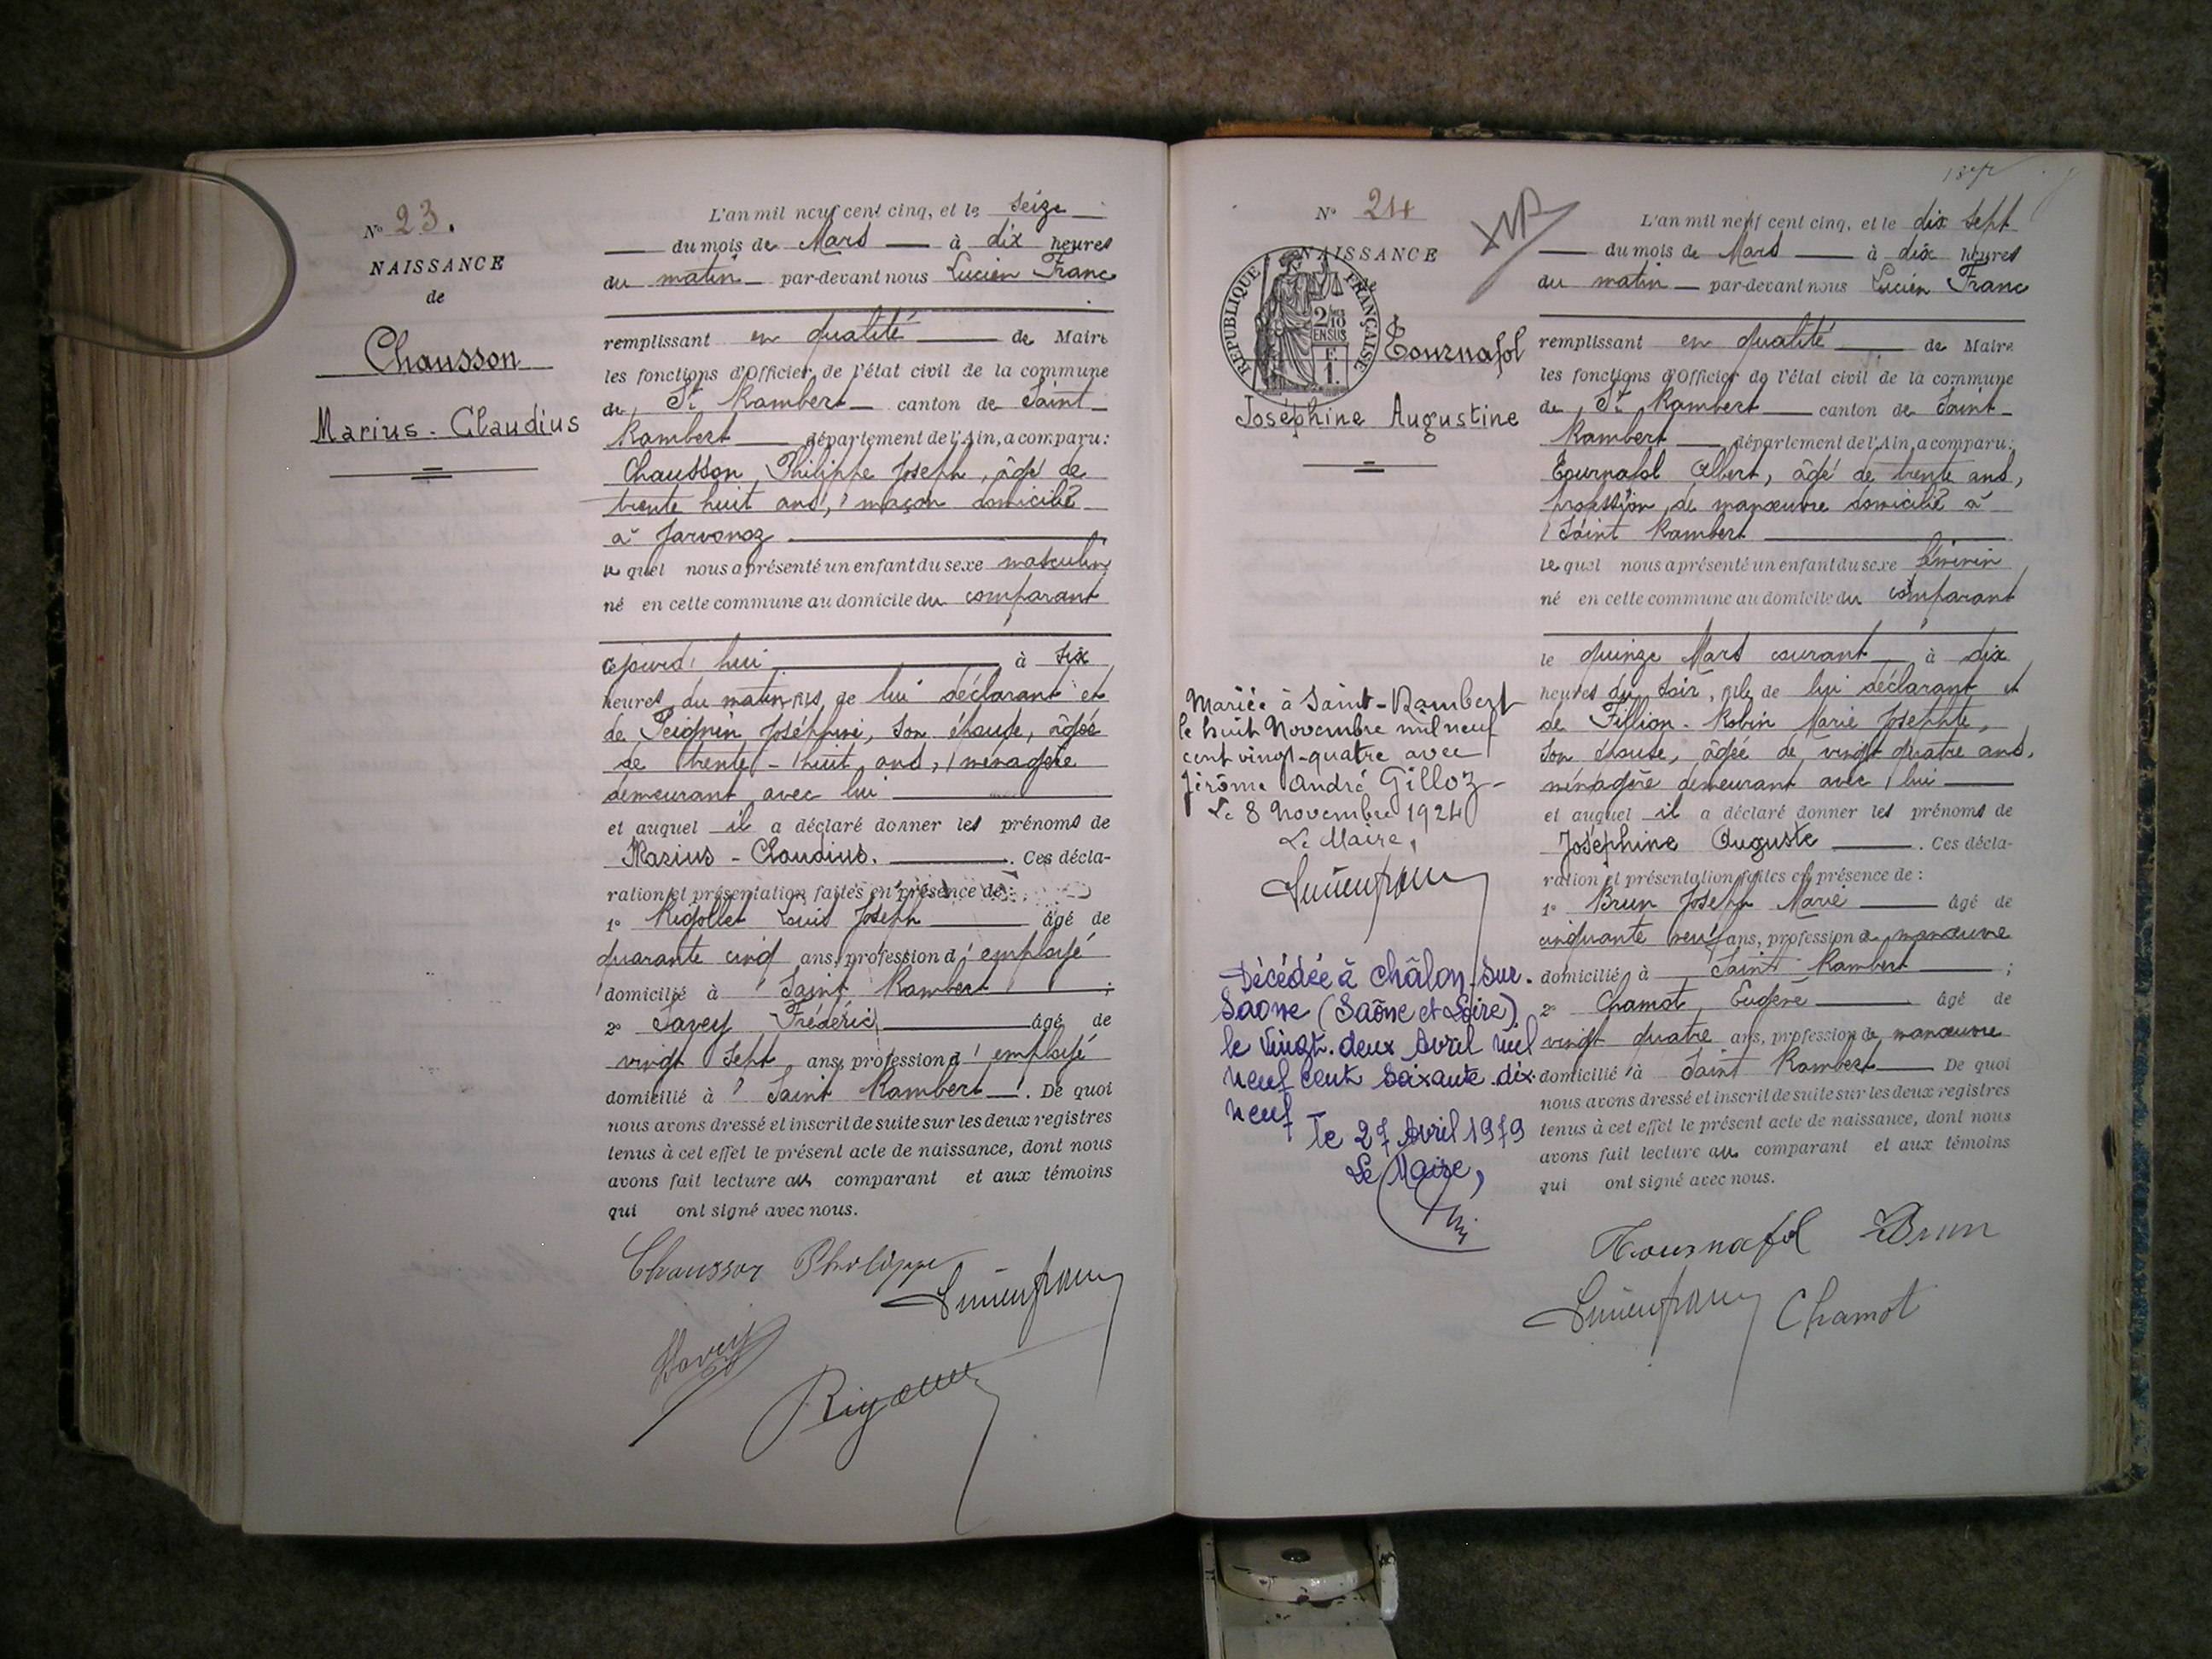 N° 23.
NAISSANCE
de
Chausson
Marius - Claudius
L'an mil neuf cent cinq, et le seize
du mois de Mars à dix heures
du matin par-devant nous Lucien Franc
remplissant en qualité de Maire
les fonctions d'Officier de l'état civil de la commune
de St Rambert canton de Saint
Rambert département de l'Ain, a comparu:
Chausson Philippe Joseph, âgé de
trente huit ans, maçon domicilié
à Javornoz
le quel nous a présenté un enfant du sexe masculin
né en cette commune au domicile du comparant
cejourd'hui à six
heures du matin fils de lui déclarant et
de Joséphine, son épouse, âgée
de trente-huit ans, ménagère
demeurant avec lui
et auquel il a déclaré donner les prénoms de
Marius - Claudius. Ces décla-
ration et présentation faites en présence de:
1° Rigollet Louis Joseph âgé de
quarante cinq ans, profession d'employé
domicilié à Saint Rambert ;
2° Savey Fréderic âgé de
vingt sept ans, profession d'employé
domicilié à Saint Rambert. De quoi
nous avons dressé et inscrit de suite sur les deux registres
tenus à cet effet le présent acte de naissance, dont nous
avons fait lecture au comparant et aux témoins
qui ont signé avec nous.
Chausson Philippe
Lucien franc
Savey
N° 24
NAISSANCE
de
REPUBLIQUE FRANÇAISE
2/10
EN SUS
F.
1.
Tournafol
Joséphine Augustine
Mariée à Saint-Rambert
le huit Novembre mil neuf
cent vingt-quatre avec
Jérôme André Gilloz -
Le 8 Novembre 1924
Le Maire,
Lucien franc
Décédée à Châlon-sur-
Saone (Saône et Loire)
le Vingt-deux Avril mil
neuf cent soixante-dix-
neuf
le 27 Avril 1979
Le Maire,
L'an mil neuf cent cinq, et le dix sept
du mois de Mars à dix heures
du matin par-devant nous Lucien Franc
remplissant en qualité de Maire
les fonctions d'Officier de l'état civil de la commune
de St Rambert canton de Saint
Rambert département de l'Ain, a comparu:
Tournafol Albert, âgé de trente ans,
profession de manœuvre domicilié à
Saint Rambert
le quel nous a présenté un enfant du sexe féminin
né en cette commune au domicile du comparant
le quinze Mars courant à dix
heures du soir, fille de lui déclarant et
de Fillion-Robin Marie Josephte,
son épouse, âgée de vingt quatre ans,
ménagère demeurant avec lui
et auquel il a déclaré donner les prénoms de
Joséphine Auguste. Ces décla-
ration et présentation faites en présence de :
1° Brun Joseph Marie âgé de
cinquante neuf ans, profession de manœuvre
domicilié à Saint Rambert ;
2° Chamot Eugène âgé de
vingt quatre ans, profession de manœuvre
domicilié à Saint Rambert De quoi
nous avons dressé et inscrit de suite sur les deux registres
tenus à cet effet le présent acte de naissance, dont nous
avons fait lecture au comparant et aux témoins
qui ont signé avec nous.
Tournafol Brun
Lucien franc Chamot